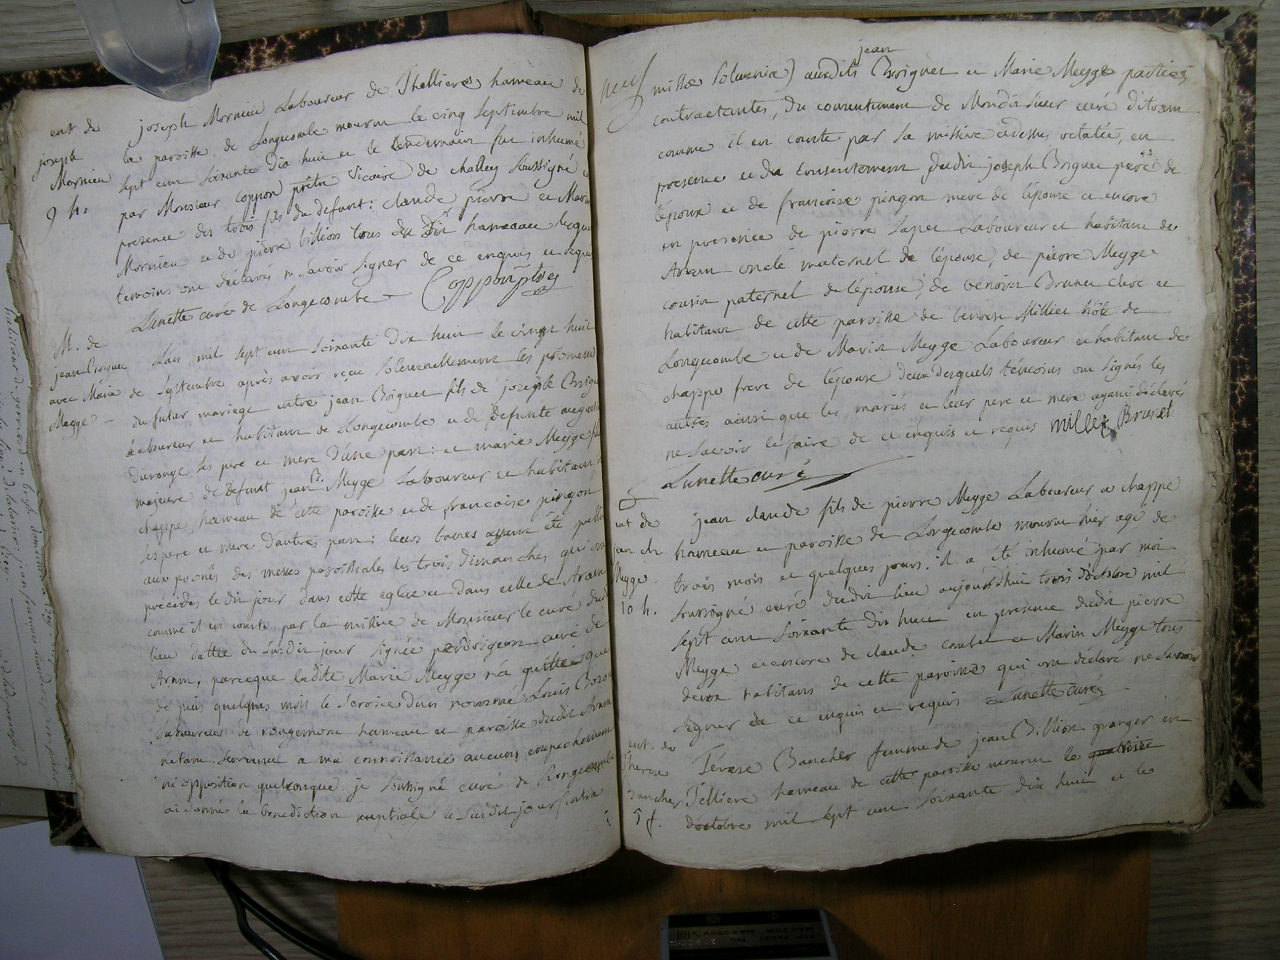 ent de
joseph
Mornieu
9 h.
joseph Mornieu Laboureur de Thelliere hameau de
la paroisse de Longecombe mourut le cinq septembre mil
sept cent soixante dix huit et le lendemain fut inhumé
par Monsieur Coppon prêtre vicaire de challey soussigné
presence des trois fils du defunt: claude pierre et Marin
Mornieu et de pierre billion tous du dit hameau lesquels
temoins ont déclarés ne sçavoir signer de ce enquis et requis
Lunette curé de Longecombe Coppon ptre
M. de
jean Briguet
avec Marie
Meyge
Lan mil sept cent soixante dix huit le vingt huit
de septembre après avoir reçu solemnellement les promesses
du futur mariage entre jean Briguet fils de joseph Briguet
Laboureur et habitant de Longecombe et de defunte
ses pere et mere d'une part: et marie Meyge fille
majeure de defunt jean Meyge Laboureur et habitant
chappe hameau de cette paroisse et de francoise pingon
ses pere et mere d'autres part: leurs bancs ayant été publiés
aux prônes des messes paroissiales les trois dimanches qui ont
précédés le dit jour dans cette eglise et dans celle de Aran
comme il en conste par la missive de Monsieur le curé du dit
lieu dattée du susdit jour signée perdrigeon curé de
Aran, parceque ladite Marie Meyge n'a quittée que
de puis quelques mois le service d'un nommé Louis
Laboureur de rougemont hameau et paroisse dudit Aran
n'etant survenu a ma connoissance aucun empechement
ni opposition quelconque je soussigné curé de Longecombe
ai donné la benediction nuptiale le susdit jour
missæ solemnia) auxdits jean Briguet et Marie Meyge parties
contractantes, du consentement de Mondit sieur curé d'Aran
comme il en conste par sa missive cidessus relatée, en
presence et du consentement dudit joseph Briguet pere de
l'epoux et de francoise pingon mere de l'epouse et encore
en presence de pierre Sapel Laboureur et habitant de
Aran oncle maternel de l'epouse, de pierre Meyge
cousin paternel de l'épouse, de benoit Brunet clerc et
habitant de cette paroisse de benoit Millier hôte de
Longecombe et de Marin Meyge Laboureur et habitant de
chappe frere de l'epouse deux desquels témoins ont signés les
autres ainsi que les mariés et leur pere et mere ayant déclarés
ne sçavoir le faire de ce enquis et requis millet Brunet
Lunette curé
ent de
jean cl.
Meyge
10 h.
jean claude fils de pierre Meyge Laboureur a chappe
hameau et paroisse de Longecombe mourut hier agé de
trois mois et quelques jours. il a été inhumé par moi
soussigné curé dudit lieu aujourdhui trois d'octobre mil
sept cent soixante dix huit en presence dudit pierre
Meyge et encore de claude et Marin Meyge tous
deux habitans de cette paroisse qui ont déclaré ne sçavoir
signer de ce enquis et requis Lunette curé
ent. de
Therese
Bancher
5 f.
Térese Bancher femme de jean Billion granger en
Telliere hameau de cette paroisse mourut le quatrieme
d'octobre mil sept cent soixante dix huit et le